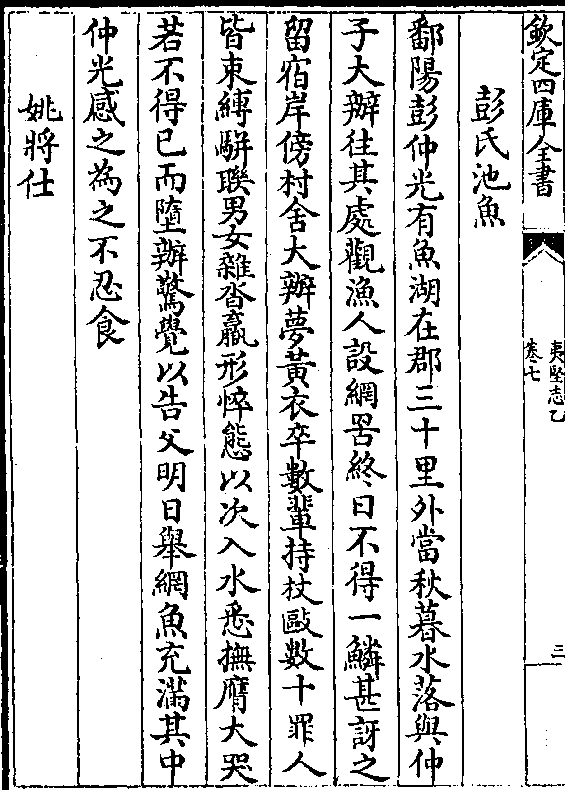 欽定四庫全書
夷堅志乙
卷七
三
彭氏池魚
鄱陽彭仲光有魚湖在郡三十里外當秋暮水落與仲
子大辦往其處觀漁人設網罟終日不得一鱗甚訝之
留宿岸傍村舍大辦夢黃衣卒數輩持杖毆數十罪人
皆束縛駢聯男女雜沓羸形悴態以次入水悉撫膺大哭
若不得已而墮辦驚覺以告父明日舉網魚充滿其中
仲光感之為之不忍食
姚將仕